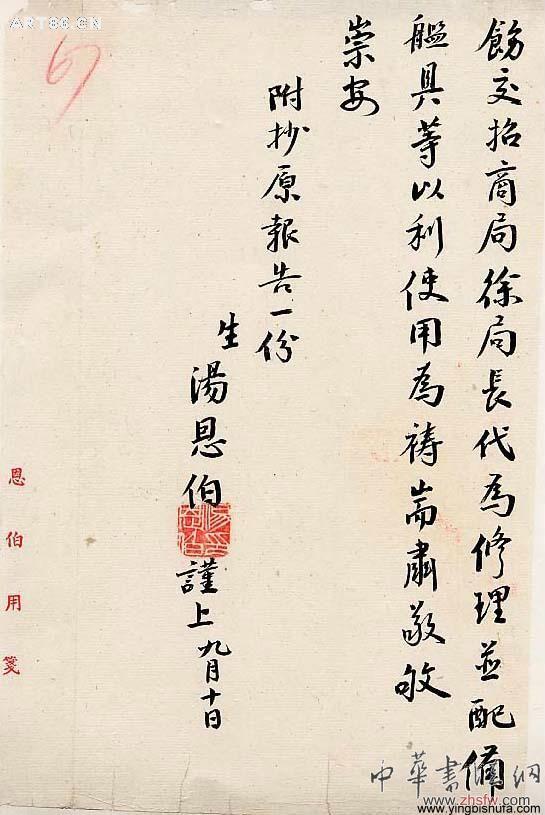 飭交招商局徐局長代為修理並配備
艦具等以利使用為禱耑肅敬敂
崇安
附抄原報告一份
生
湯恩伯
謹上九月十日
恩伯用箋
ART86.CN
中華書畫網
www.zhsfw.com
www.yingbishufa.com